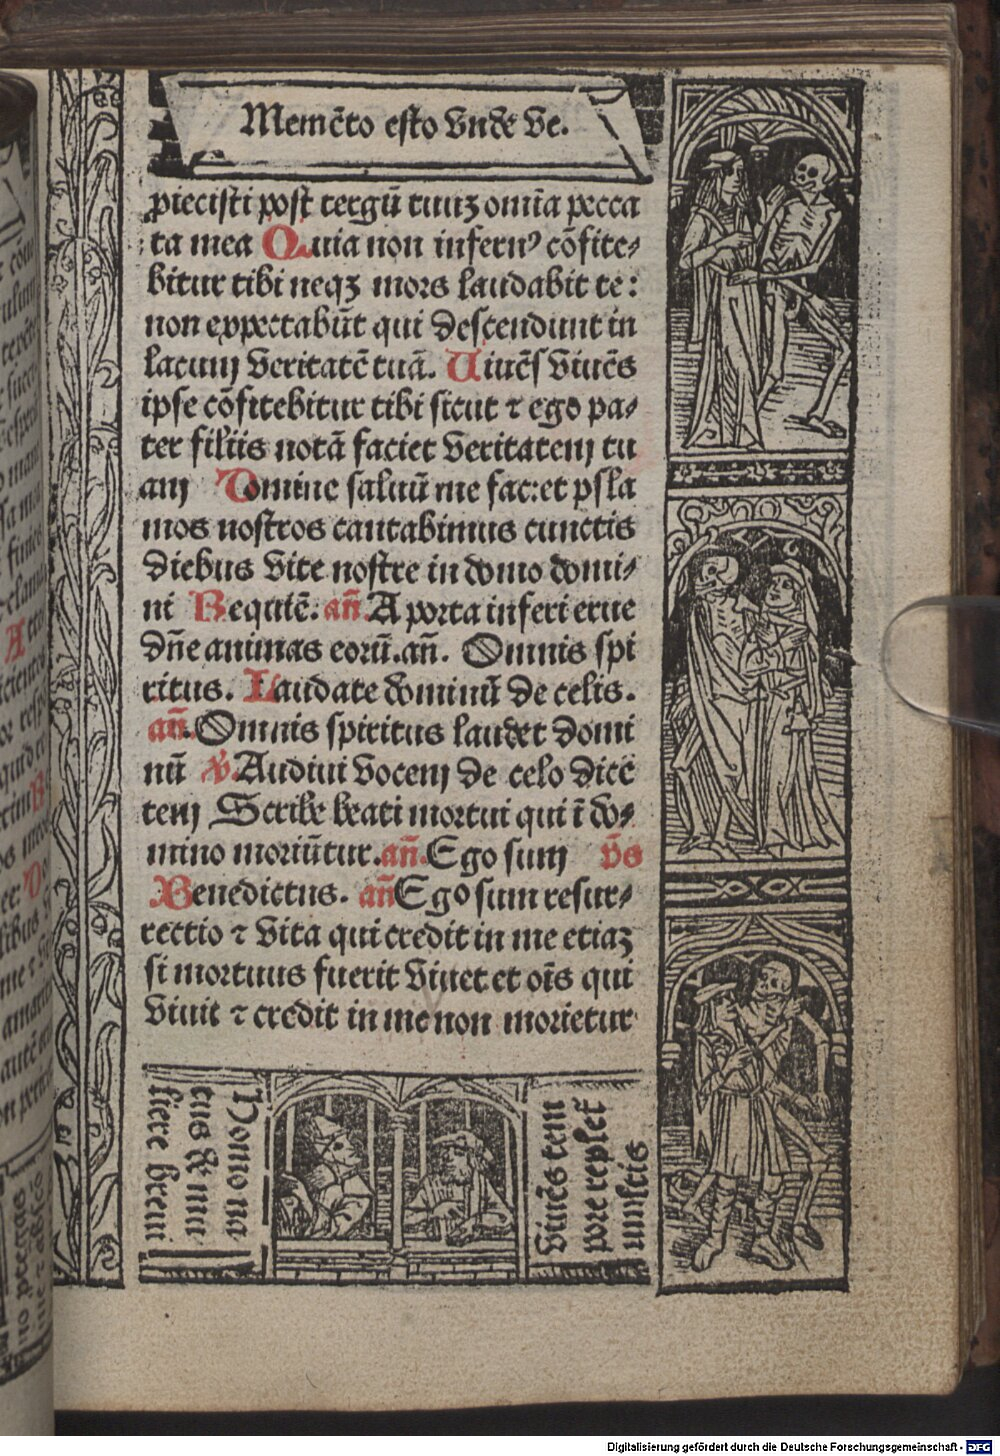 Memēto esto vnde ve.
piecisti post tergū tuuꝫ omīa pecca
ta mea Quia non infernꝰ cōfite⸗
bitur tibi neqꝫ mors laudabit te:
non expectabūt qui descendunt in
lacum veritatē tuā. Uiuēs viuēs
ipse cōfitebitur tibi sicut ⁊ ego pa⸗
ter filiis notā faciet veritatem tu
am Domine saluū me fac: et psla
mos nostros cantabimus cunctis
diebus vite nostre in domo domi⸗
ni Requiē. añ. A porta inferi erue
dñe animas eorū. añ. Omnis spi
ritus. Laudate dominū de celis.
añ. Omnis spiritus laudet domi
nū ꝟ. Audiui vocem de celo dicē
tem Scribe beati mortui qui ī do⸗
mino moriūtur. añ. Ego sum p̄s
Benedictus. añ Ego sum resur⸗
rectio ⁊ vita qui credit in me etiaꝫ
si mortuus fuerit viuet et oīs qui
viuit ⁊ credit in me non morietur
Homo na
tus de mu
liere breui
viuēs tem
pore repleť
multis
Digitalisierung gefördert durch die Deutsche Forschungsgemeinschaft - DFG